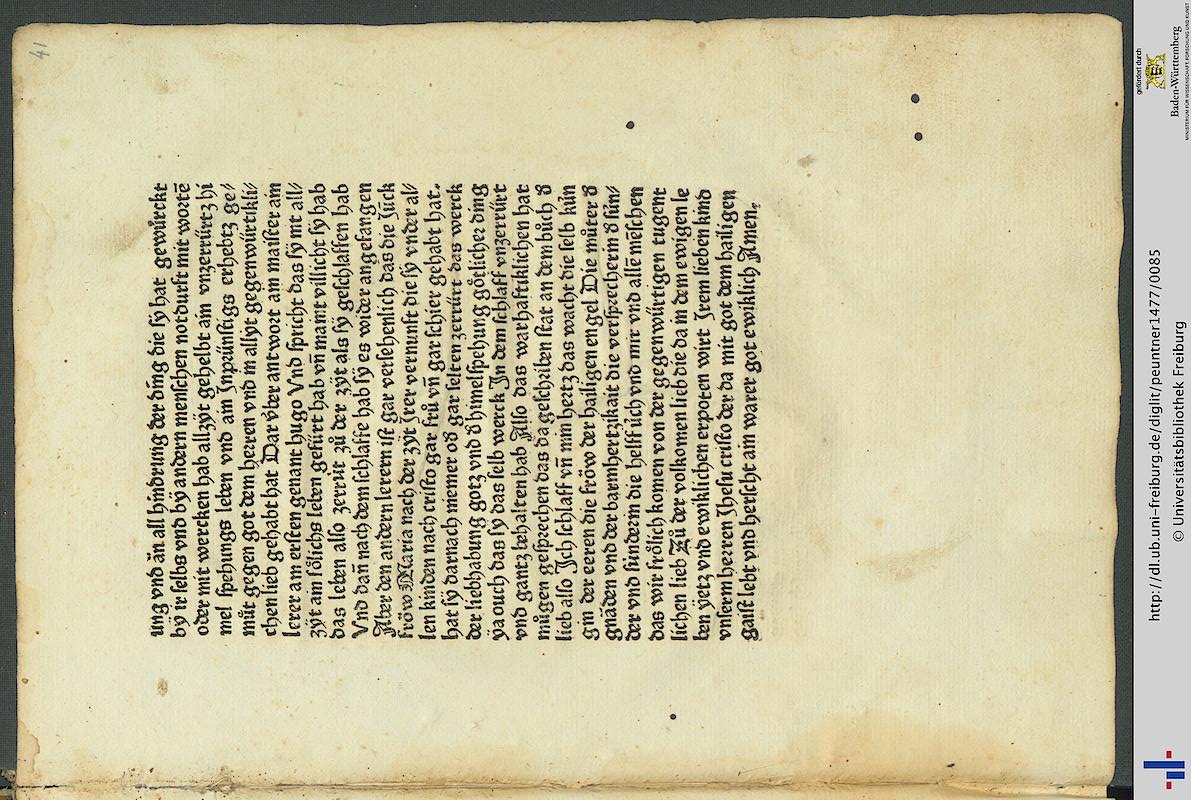 41
ung vnd ăn all hindrung der ding die sÿ hat gewürckt
bÿ ir selbs vnd bÿ andern menschen notdurft mit wortē
oder mit wercken hab allzÿt gehebt ain vnzerrürtz hi
mel spehungs leben vnd ain Inprünstigs erhebtz ge⸗
mu̇t gegen got dem herren vnd in allÿt gegenwürtikli⸗
chen lieb gehabt hat Dar vber antwort ain maister am
lerer am ersten genant hugo Vnd spricht das sÿ mt all⸗
zÿt am sölichs leben gefürt hab vn̄ mamt villicht sÿ hab
das leben also zerrüt zů der zÿt als sÿ geschlaffen hab
Vnd dan̄ nach dem schlaffe hab sÿ es wider angefangen
Aber den andern lerern ist gar versehenlich das die Juck
fröw Maria nach der zÿt Irer vernunft die sÿ vnder al⸗
len kinden nach cristo gar frů vn̄ gar schier gehabt hat.
hat sÿ darnach niemer od̕ gar selten zerrürt das werck
der liebhabung gotz vnd d̕ himelspehung götlicher ding
ÿa ouch das sÿ das selb werck In dem schlaff vnzerrürt
vnd gantz behalten hab Also das warhaftiklichen hat
mügen gesprechen das da geschriben stat an dem bůch d̕
lieb also Ich schlaff vn̄ min hertz das wacht die selb kün
gin der eeren die fröw der hailigen engel Die můter d̕
gnäden vnd der barmhertzikait die versprecherin d̕ sün⸗
der vnd sünderin die helff üch vnd mir vnd allē mēschen
das wir frölich komen von der gegenwürtigen tugent
lichen lieb Zů der volkomen lieb die da in dem ewigen le
ben ÿetz vnd ewiklichen erpoten wirt Irem lieben kind
vnserm herren Jhesu cristo der da mit got dem hailigen
gaist lebt vnd herscht ain warer got ewiklich Amen.
gefördert durch
Baden-Württemberg
MINISTERIUM FÜR WISSENSCHAFT, FORSCHUNG UND KUNST
http://dl.ub.uni-freiburg.de/diglit/peuntner1477/0085
© Universitätsbibliothek Freiburg